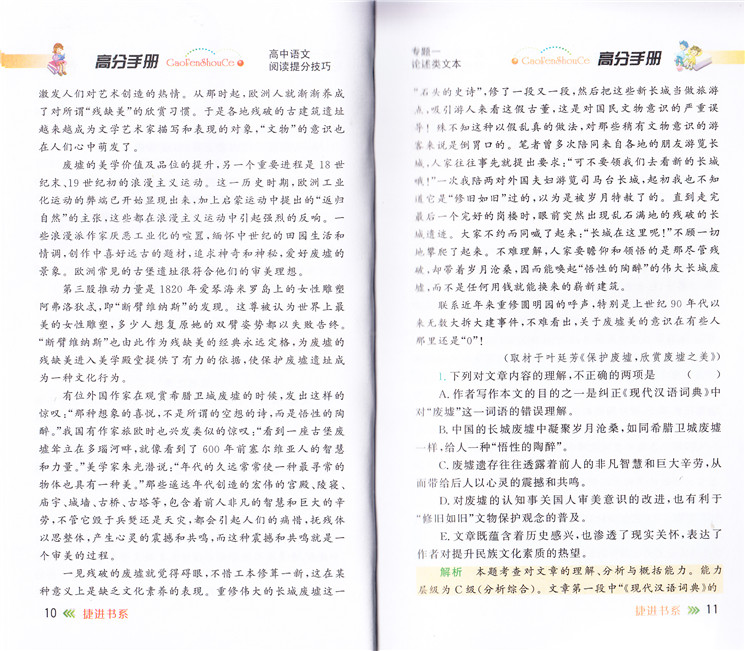 高分手册 GaoFenShouCe
高中语文
阅读提分技巧
激发人们对艺术创造的热情。从那时起,欧洲人就渐渐养成
了对所谓“残缺美”的欣赏习惯。于是各地残破的古建筑遗址
越来越成为文学艺术家描写和表现的对象,“文物”的意识也
在人们心中萌发了。
废墟的美学价值及品位的提升,另一个重要进程是 18 世
纪末、19 世纪初的浪漫主义运动。这一历史时期,欧洲工业
化运动的弊端已开始显现出来,加上启蒙运动中提出的“返归
自然”的主张,这些都在浪漫主义运动中引起强烈的反响。一
些浪漫派作家厌恶工业化的喧嚣,缅怀中世纪的田园生活和
情调,创作中喜好远古的题材,追求神奇和神秘,爱好废墟的
景象。欧洲常见的古堡遗址很符合他们的审美理想。
第三股推动力量是 1820 年爱琴海米罗岛上的女性雕塑
阿弗洛狄忒,即“断臂维纳斯”的发现。这尊被认为世界上最
美的女性雕塑,多少人想复原她的双臂姿势都以失败告终。
“断臂维纳斯”也由此作为残缺美的经典永远定格,为废墟的
残缺美进入美学殿堂提供了有力的依据,使保护废墟遗址成
为一种文化行为。
有位外国作家在观赏希腊卫城废墟的时候,发出这样的
惊叹:“那种想象的喜悦,不是所谓的空想的诗,而是悟性的陶
醉。”我国有作家旅欧时也兴发类似的惊叹:“看到一座古堡废
墟耸立在多瑙河畔,就像看到了 600 年前塞尔维亚人的智慧
和力量。”美学家朱光潜说:“年代的久远常常使一种最寻常的
物体也具有一种美。”那些遥远年代创造的宏伟的宫殿、陵寝、
庙宇、城墙、古桥、古塔等,包含着前人非凡的智慧和巨大的辛
劳,不管它毁于兵燹还是天灾,都会引起人们的痛惜,抚残体
以思整体,产生心灵的震撼和共鸣,而这种震撼和共鸣就是一
个审美的过程。
一见残破的废墟就觉得碍眼,不惜工本修葺一新,这在某
种意义上是缺乏文化素养的表现。重修伟大的长城废墟这一
10 捷进书系
专题一
论述类文本
GaoFenShouCe 高分手册
“石头的史诗”,修了一段又一段,然后把这些新长城当做旅游
点,吸引游人来看这假古董,这是对国民文物意识的严重误
导！殊不知这种以假乱真的做法,对那些稍有文物意识的游
客来说是倒胃口的。笔者曾多次陪同来自各地的朋友游览长
城,人家往往事先就提出要求:“可不要领我们去看新的长城
哦!”一次我陪两对外国夫妇游览司马台长城,起初我也不知
道它是“修旧如旧”过的,以为是被岁月特赦了的。直到走完
最后一个完好的岗楼时,眼前突然出现乱石满地的残破的长
城遗迹。大家不约而同喊了起来:“长城在这里呢!”不顾一切
地攀爬了起来。不难理解,人家要瞻仰和领悟的是那尽管残
破,却带着岁月沧桑,因而能唤起“悟性的陶醉”的伟大长城废
墟,而不是任何用钱就能换来的崭新建筑。
联系近年来重修圆明园的呼声,特别是上世纪 90 年代以
来无数大拆大建事件,不难看出,关于废墟美的意识在有些人
那里还是“0”!
(取材于叶廷芳《保护废墟,欣赏废墟之美》)
1. 下列对文章内容的理解,不正确的两项是 ( )
A. 作者写作本文的目的之一是纠正《现代汉语词典》中
对“废墟”这一词语的错误理解。
B. 中国的长城废墟中凝聚岁月沧桑,如同希腊卫城废墟
一样,给人一种“悟性的陶醉”。
C. 废墟遗存往往透露着前人的非凡智慧和巨大辛劳,从
而带给后人以心灵的震撼和共鸣。
D. 对废墟的认知事关国人审美意识的改进,也有利于
“修旧如旧”文物保护观念的普及。
E. 文章既蕴含着历史感兴,也渗透了现实关怀,表达了
作者对提升民族文化素质的热望。
解析 本题考查对文章的理解、分析与概括能力。能力
层级为 C 级(分析综合)。文章第一段中“《现代汉语词典》的
捷进书系 11